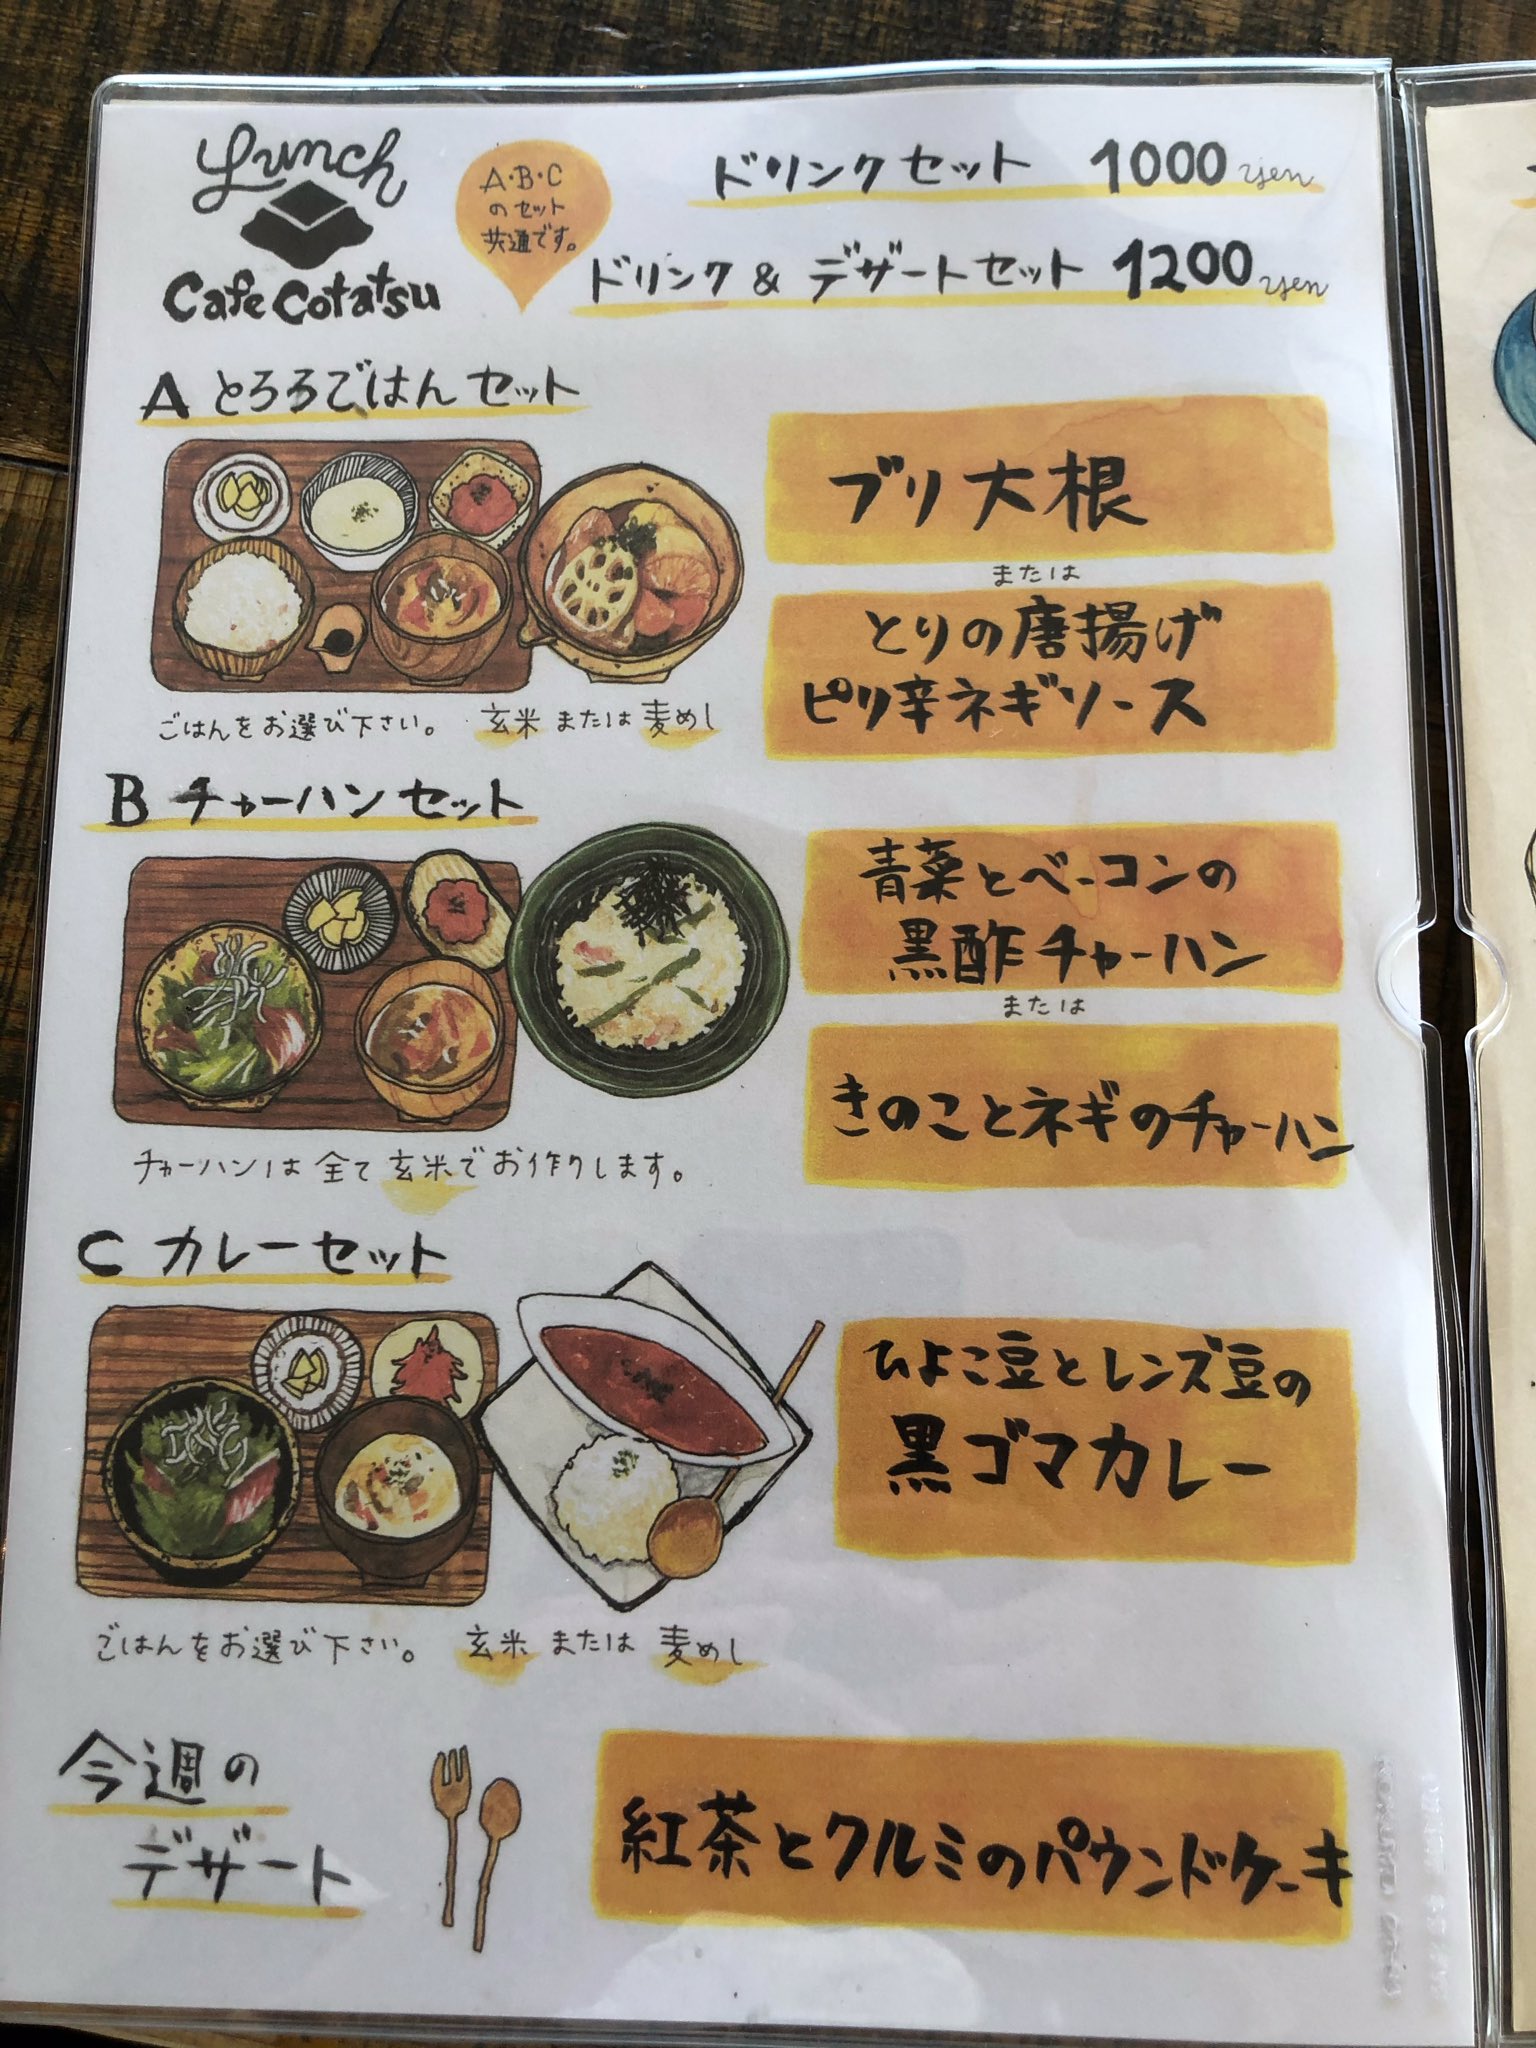 Lunch
Cafe Cotatsu
A・B・C
のセット
共通です。
ドリンクセット 1000 yen
ドリンク & デザートセット 1200 yen
A とろろごはんセット
ブリ大根
または
とりの唐揚げ
ピリ辛ネギソース
ごはんをお選び下さい。 玄米 または 麦めし
B チャーハンセット
青菜とベーコンの
黒酢チャーハン
または
きのことネギのチャーハン
チャーハンは全て玄米でお作りします。
C カレーセット
ひよこ豆とレンズ豆の
黒ゴマカレー
ごはんをお選び下さい。 玄米 または 麦めし
今週の
デザート
紅茶とクルミのパウンドケーキ